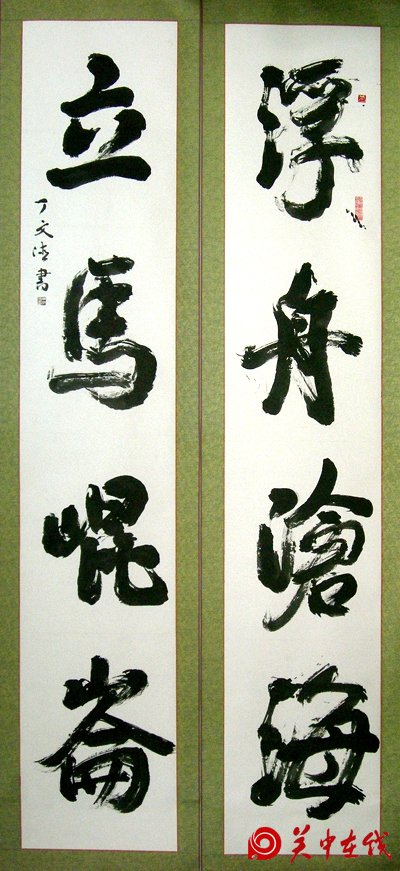 浮舟滄海
立馬崐崙
丁文清書
关中在线